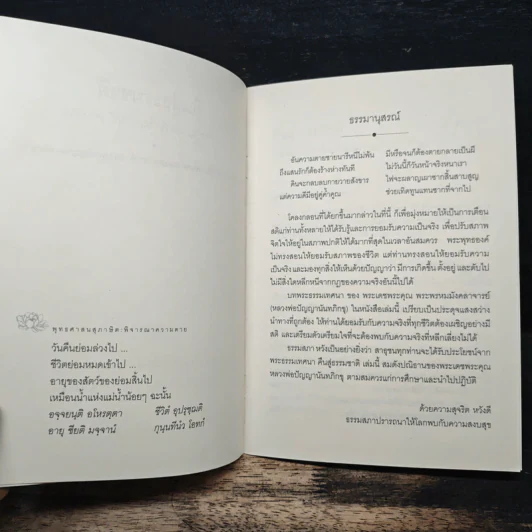 พุทธศาสนสุภาษิต:พิจารณาความตาย
วันคืนย่อมล่วงไป ...
ชีวิตย่อมหมดเข้าไป ...
อายุของสัตว์ของย่อมสิ้นไป
เหมือนน้ำแห่งแม่น้ำน้อยๆ ฉะนั้น
อจฺจยนฺติ อโหรตฺตา ชีวิตํ อุปรุชฺฌติ
อายุ ขียติ มจฺจานํ กุนฺนทีนํว โอทกํ
ธรรมานุสรณ์
อันความตายชายนารีหนีไม่พ้น มีหรือจนก็ต้องตายกลายเป็นผี
ถึงแสนรักก็ต้องร้างห่างทันที ไม่วันนี้ก็วันหน้าจริงหนาเรา
ดินจะกลบลบกายวายสังขาร ไฟจะผลาญเผาซากสิ้นสาบสูญ
แต่ความดีมีอยู่คู่ค้ำคูณ ช่วยเทิดทูนแทนซากที่จากไป
โคลงกลอนที่ได้ยกขึ้นมากล่าวในที่นี้ ก็เพื่อมุ่งหมายให้เป็นการเตือน
สติแก่ท่านทั้งหลายให้ได้รับรู้และการยอมรับความเป็นจริง เพื่อปรับสภาพ
จิตใจให้อยู่ในสภาพปกติให้ได้มากที่สุดในเวลาอันสมควร พระพุทธองค์
ไม่ทรงสอนให้ยอมรับสภาพของชีวิต แต่ท่านทรงสอนให้ยอมรับความ
เป็นจริง และมองทุกสิ่งให้เห็นด้วยปัญญาว่า มีการเกิดขึ้น ตั้งอยู่ และดับไป
ไม่มีสิ่งใดหลีกหนีจากกฎของความจริงอันนี้ไปได้
บทพระธรรมเทศนา ของ พระเดชพระคุณ พระพรหมมังคลาจารย์
(หลวงพ่อปัญญานันทภิกขุ) ในหนังสือเล่มนี้ เปรียบเป็นประดุจแสงสว่าง
นำทางที่ถูกต้อง ให้ท่านได้ยอมรับกับความจริงที่ทุกชีวิตต้องเผชิญอย่างมี
สติ และเตรียมตัวเตรียมใจที่จะต้องพบกับความจริงที่หลีกเลี่ยงไม่ได้
ธรรมสภา หวังเป็นอย่างยิ่งว่า สาธุชนทุกท่านจะได้รับประโยชน์จาก
พระธรรมเทศนา คืนสู่ธรรมชาติ เล่มนี้ สมดังปณิธานของพระเดชพระคุณ
หลวงพ่อปัญญานันทภิกขุ ตามสมควรแก่การศึกษาและนำไปปฏิบัติ
ด้วยความสุจริต หวังดี
ธรรมสภาปรารถนาให้โลกพบกับความสงบสุข